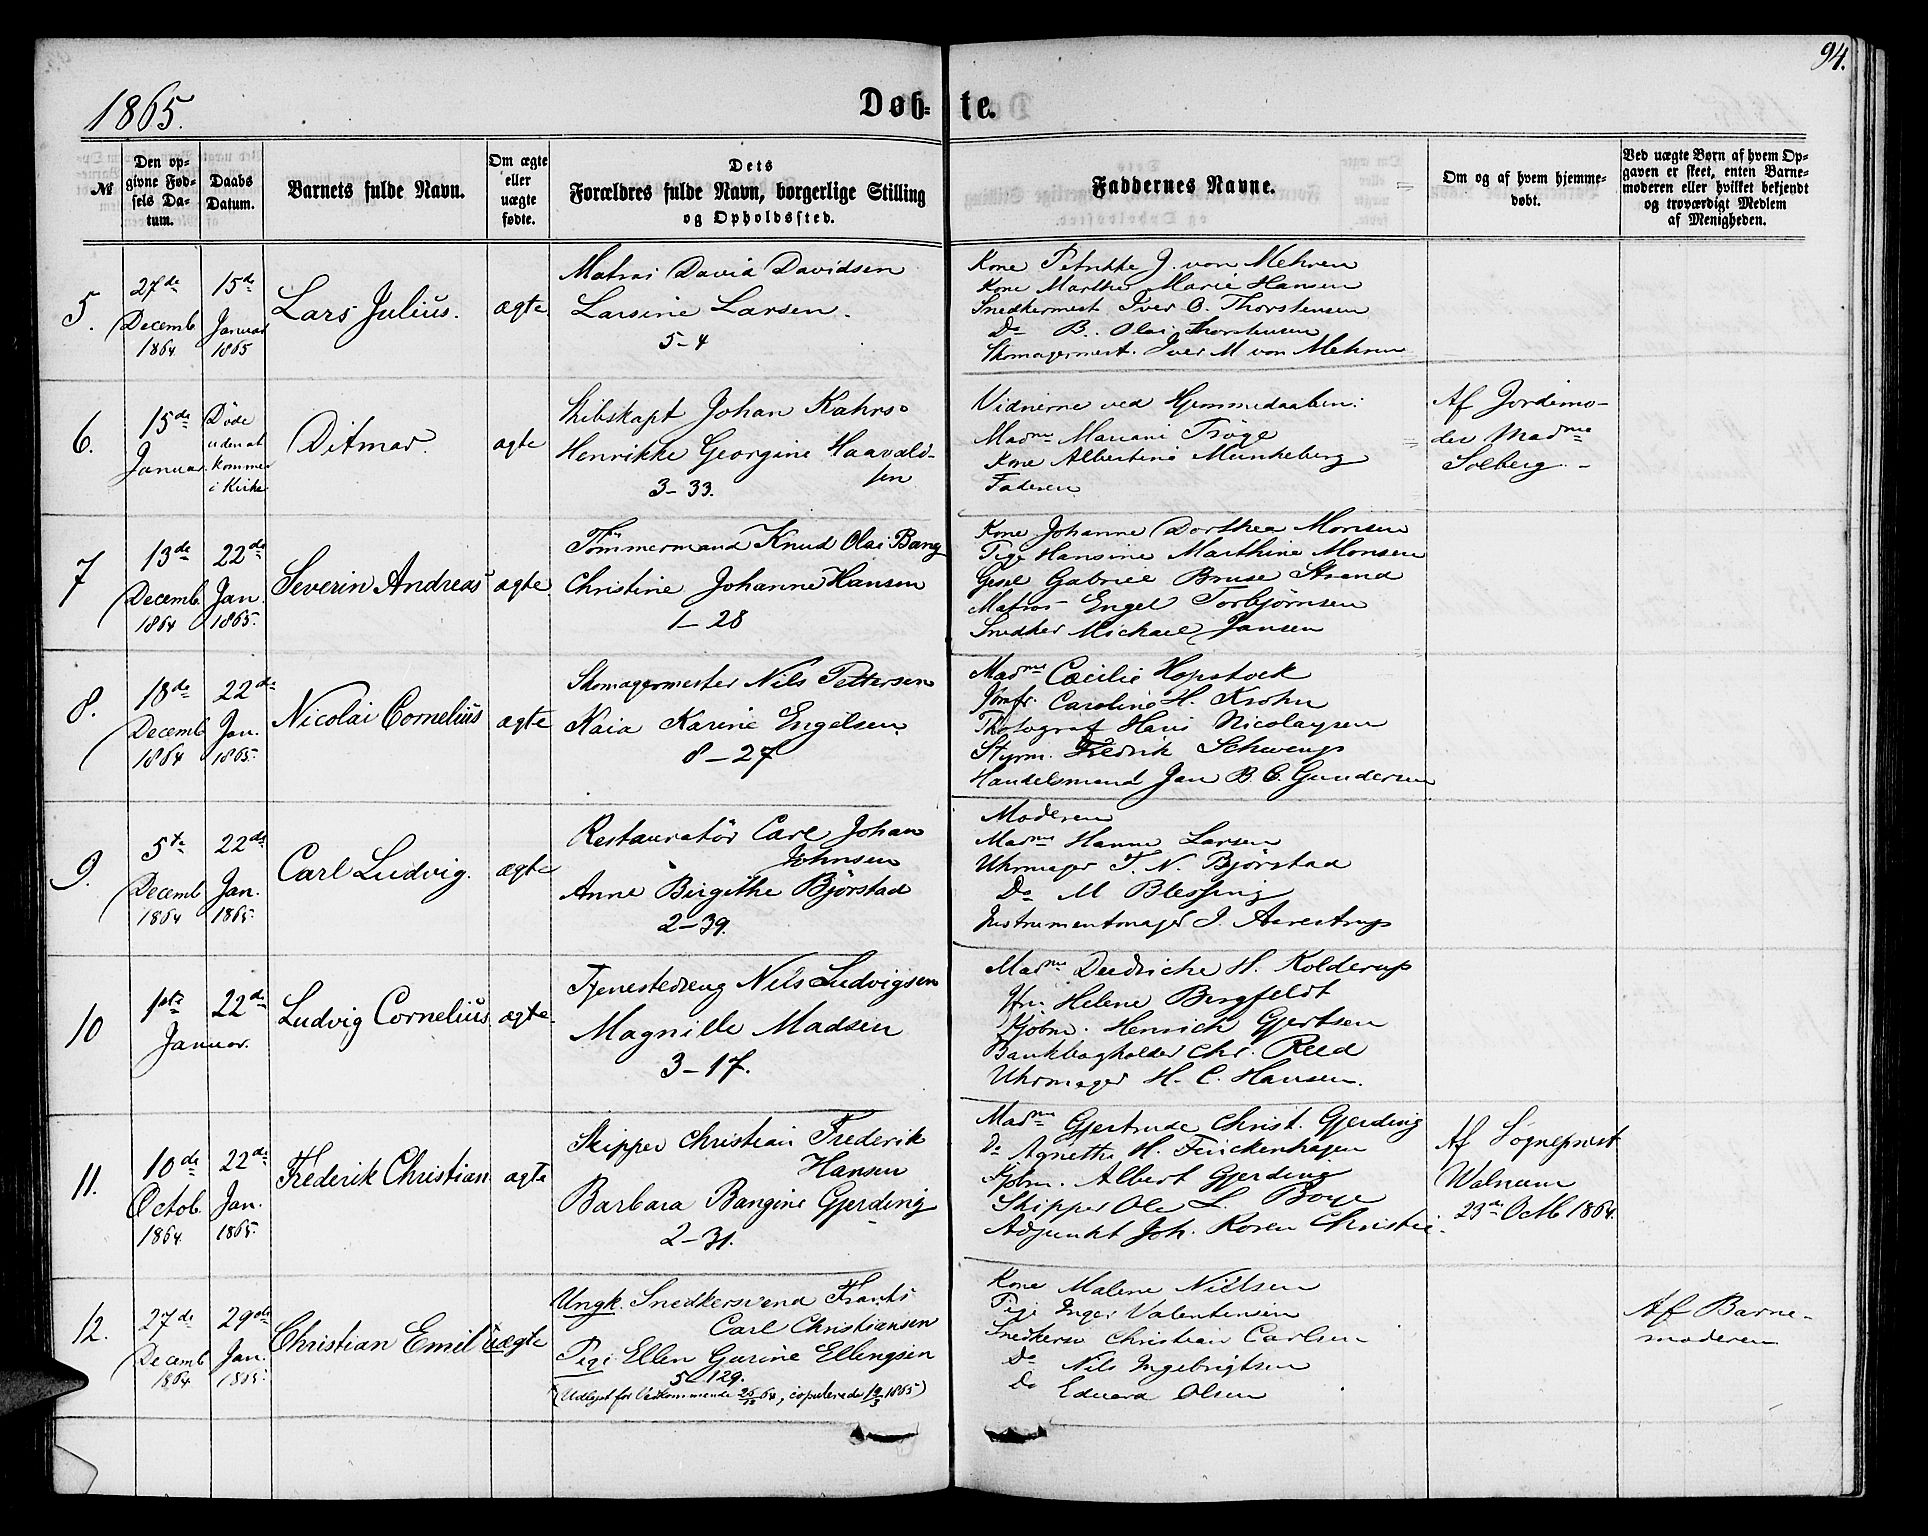 94.
1865.
Døb-te.
№
Den op-
givne Fød-
sels Da-
tum.
Daabs
Datum.
Barnets fulde Navn.
Om ægte
eller
uægte
fødte.
Dets
Forældres fulde Navn, borgerlige Stilling
og Opholdssted.
Faddernes Navne.
Om og af hvem hjemme-
døbt.
Ved uægte Børn af hvem Op-
gaven er skeet, enten Barne-
moderen eller hvilket bekjendt
og troværdigt Medlem
af Menigheden.
5.
27de
Decemb
1864
15de
Januar
1865
Lars Julius.
ægte
Matros David Davidsen
Larsine Larsen.
5-4
Kone Petrikke J. von Mehren
Kone Marthe Marie Hansen
Snedkermest Iver O. Thorstensen
Do B. Olai Thorstensen
Skomagermest. Iver M von Mehren
6.
15de
Januar
Døde
uden at
komme
i Kirke
Ditmar.
ægte
Skibskapt Johan Kahrs
Henrikke Georgine Haavald-
sen
3-33.
Vidnerne ved Hjemmedaaben:
Madme Mariani Tröge
Kone Albertine Munkeberg
Faderen
Af Jordemo-
der Madme
Solberg.
7
13de
Decemb.
1864
22de
Jan.
1865.
Severin Andreas
ægte
Tömmermand Knud Olai Bang
Christine Johanne Hansen
1-28
Kone Johanne Dorthea Monsen
Pige Hansine Marthine Monsen
Gesel Gabriel Bruse Strand
Matros Engel Torbjørnsen
Snedker Michael Jansen
8.
18de
Decemb
1864
22de
Jan.
1865.
Nicolai Cornelius
ægte
Skomagermester Nils Pettersen
Kaia Karine Engelsen
8-27
Madme Cæcilie Hopstock
Jomfr. Caroline H. Krohn
Photograf Hans Nicolaysen
Styrm. Fredrik Schwengs
Handelsmand Jan B. C. Gundersen
9.
5te
Decemb
1864
22de
Jan.
1865.
Carl Ludvig.
ægte
Restauratör Carl Johan
Johnsen
Anne Birgithe Björstad
2-39.
Moderen
Madme Hanne Larsen
Uhrmager T. N. Björstad
Do M Blessing
Instrumentmager J. Aarestrup
10
1ste
Januar.
22de
Ludvig Cornelius
ægte.
Tjenestedreng Nils Ludvigsen
Magnille Madsen
3-17.
Madme Deedriche H. Kolderup
Helene Bergfeldt
Kjöbm. Henrich Gjertsen
Bankbogholder Chr. Reed
Uhrmager H. C. Hansen.
11.
10de
Octob.
1864
22de
Jan.
1865.
Frederik Christian
ægte
Skipper Christian Frederik
Hansen
Barbara Bangine Gjerding
2-31.
Madme Gjertrude Christ. Gjerding
Do Agnethe H. Finckenhagen
Kjöbm. Albert Gjerding
Skipper Ole L. Boye
Adjunkt Joh. Koren Christie.
Af Sognepræst
Walnum
23de Octb 1864.
12.
27de
Decemb
1864
29de
Jan.
1865.
Christian Emil
uægte
Ungk. Snedkersvend Frants
Carl Christiansen
Pige Ellen Gurine Ellingsen
5-129.
(Udlagt for Vedkommende 26/12 64, copulerede 19/3 1865)
Kone Malene Nielsen
Pige Inger Valentinsen
Snedkersv Christian Carlsen
Do Nils Ingebrigtsen
Do Edvard Olsen
Af Barne-
moderen